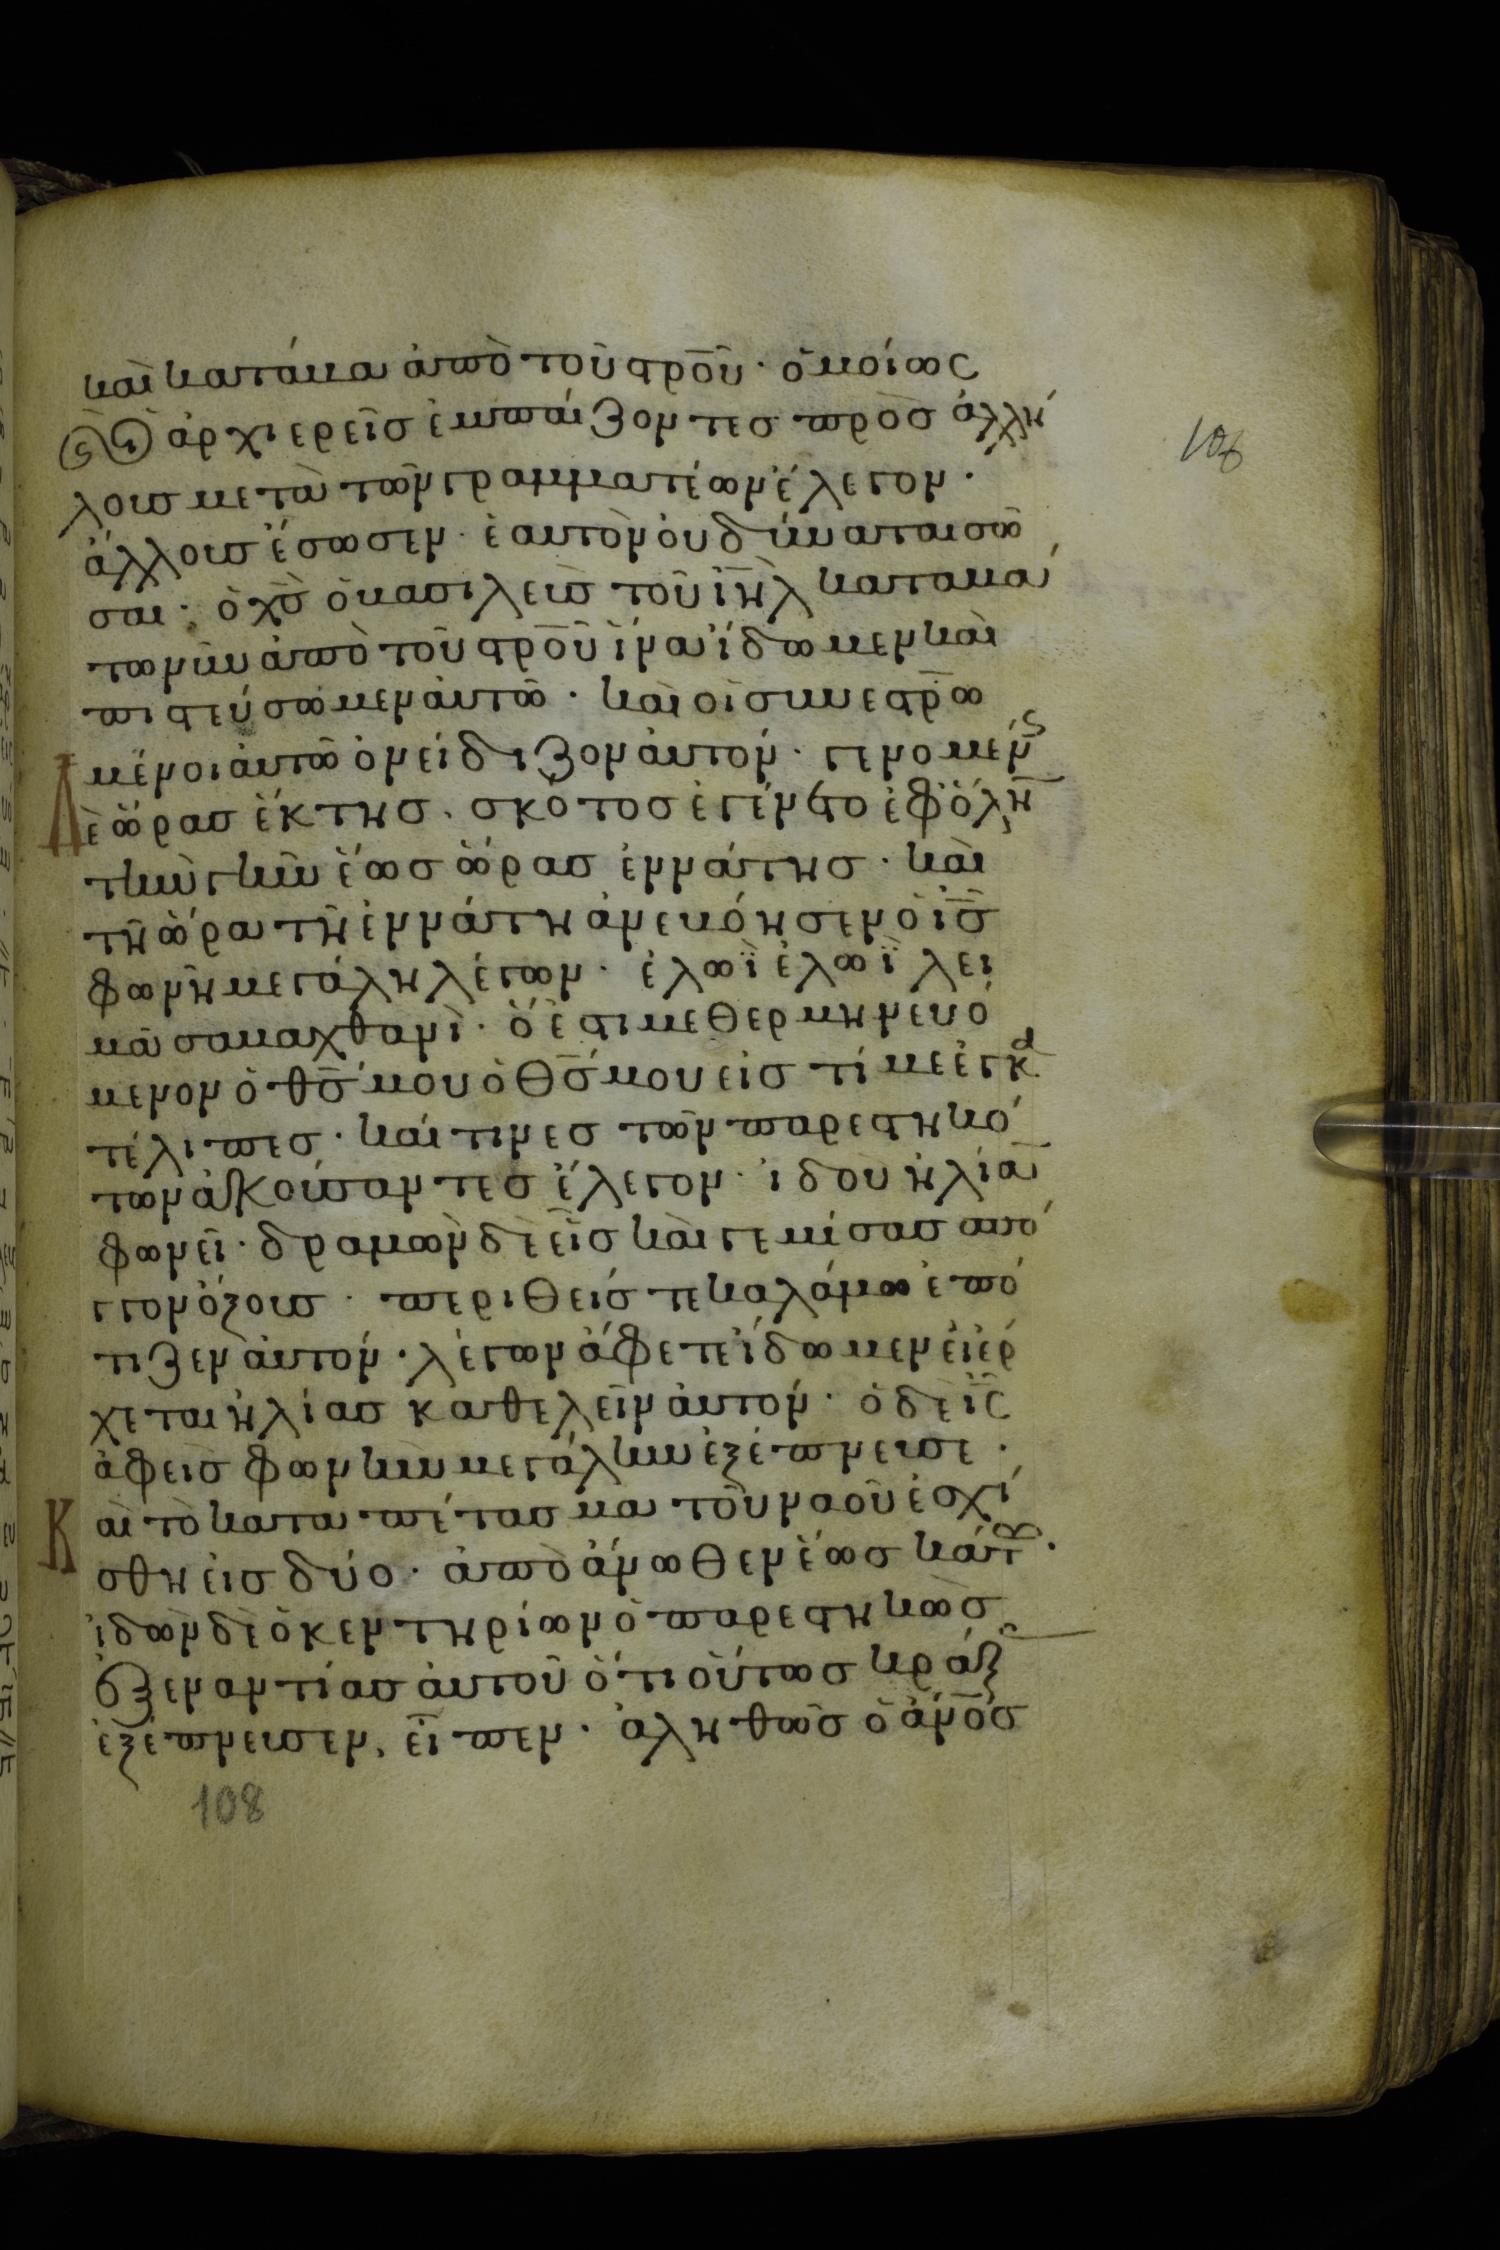 καὶ κατάβα ἀπὸ τοῦ στ̅ρ̅ο̅υ̅ · ὁμοίως
106
ϛ̀ ὁι ἀρχιερεῖσ ἐμπαίζοντεσ πρὸσ ἀλλή
λουσ μετὰ τῶν γραμματέων ἔλεγον ·
ἄλλουσ ἔσωσεν · ἑαυτὸν ὀυ δύναται σῶ
σαι · ὁ χ̅σ̅ ὁ βασιλεὺσ τοῦ ἰη̅λ̅ καταβά
τω νῦν ἀπὸ τοῦ στ̅ρ̅ο̅υ̅ ἵνα ἴδωμεν καὶ
πιστεύσωμεν ἀυτῶ · καὶ οἱ συνεστ̅ρ̅ω
μένοι ἀυτῶ ὀνείδιζον ἀυτόν · γενομένησ
Δὲ ὥρασ ἕκτησ · σκότοσ ἐγένετο ἐφ ὅλην
τὴν γῆν ἕωσ ὥρασ ἐννάτησ · καὶ
τῆ ὥρα τῆ ἐννάτη ἀνεβόησεν ὁ ι̅σ̅
φωνῆ μεγάλη λέγων · ἐλωῒ ἐλωῒ λει
μᾶ σαβαχθανὶ · ὅ ἐστι μεθερμηνευό
μενον ὁ θ̅σ̅ μου ὁ θ̅σ̅ μου εἰσ τί με ἐγκα
τέλιπεσ · καί τινεσ τῶν παρεστηκό
των ἀκούσαντεσ ἔλεγον · ἰδοὺ ἠλίαν
φωνεῖ · δραμὼν δὲ εἷσ καὶ γεμίσασ σπό
γγον ὄξουσ · περιθείσ τε καλάμω ἐπό
τιζεν ἀυτόν · λέγων ἄφετε ἴδωμεν ἐι ἔρ
χεται ἠλίασ καθελεῖν ἀυτόν · ὁ δὲ ι̅ς̅
ἀφεὶσ φωνὴν μεγάλην ἐξέπνευσε ·
Καὶ τὸ καταπέτασμα τοῦ ναοῦ ἐσχί
σθη ἐισ δύο · ἀπὸ ἄνωθεν ἕωσ κάτω ·
ἰδὼν δὲ ὁ κεντηρίων ὁ παρεστηκὼσ
ἐξεναντίασ ἀυτοῦ ὅτι οὕτωσ κράξασ
ἐξέπνευσεν, εἶπεν · ἀληθῶσ ὁ ἄν̅ο̅σ̅
108